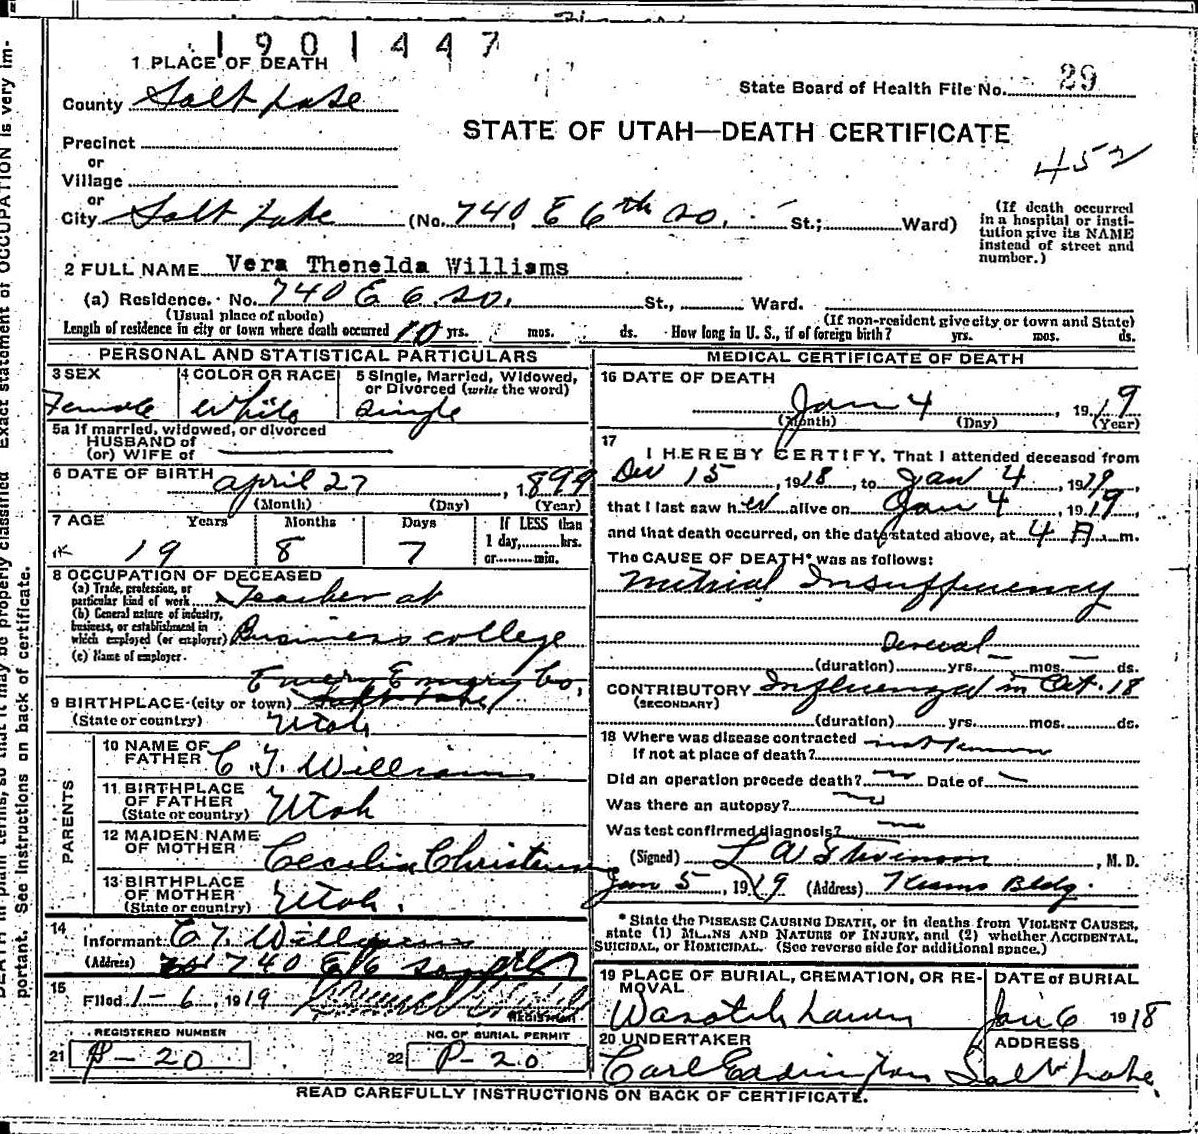 1901447
1 PLACE OF DEATH
County Salt Lake
State Board of Health File No. 29
STATE OF UTAH—DEATH CERTIFICATE
452
Precinct
or
Village
or
City Salt Lake (No. 740, E 6th So. St.; Ward)
(If death occurred in a hospital or institution give its NAME instead of street and number.)
2 FULL NAME Vera Thenelda Williams
(a) Residence. No. 740 E 6. So. St., Ward.
(Usual place of abode) (If non-resident give city or town and State)
Length of residence in city or town where death occurred 10 yrs. mos. ds. How long in U. S., if of foreign birth? yrs. mos. ds.
PERSONAL AND STATISTICAL PARTICULARS
3 SEX
Female
4 COLOR OR RACE
White
5 Single, Married, Widowed, or Divorced (write the word)
Single
5a If married, widowed, or divorced
HUSBAND of
(or) WIFE of
6 DATE OF BIRTH April 27, 1899
(Month) (Day) (Year)
7 AGE Years Months Days If LESS than 1 day, hrs. or min.
19 8 7
8 OCCUPATION OF DECEASED
(a) Trade, profession, or particular kind of work Teacher at
(b) General nature of industry, business, or establishment in which employed (or employer) Business college
(c) Name of employer.
Emery Emery Co,
9 BIRTHPLACE (city or town) Salt Lake
(State or country) Utah
PARENTS
10 NAME OF FATHER C. T. Williams
11 BIRTHPLACE OF FATHER (State or country) Utah
12 MAIDEN NAME OF MOTHER Cecelia
13 BIRTHPLACE OF MOTHER (State or country) Utah.
14 Informant C T. Williams
(Address) 740 E 6 So
15 Filed 1-6, 1919
REGISTRAR
REGISTERED NUMBER
21 P-20
NO. OF BURIAL PERMIT
22 P-20
MEDICAL CERTIFICATE OF DEATH
16 DATE OF DEATH
Jan 4, 1919
(Month) (Day) (Year)
17 I HEREBY CERTIFY, That I attended deceased from
Dec 15, 1918, to Jan 4, 1919,
that I last saw her alive on Jan 4, 1919,
and that death occurred, on the date stated above, at 4 A. m.
The CAUSE OF DEATH* was as follows:
Mitrial Insufficiency
Several
(duration) yrs. mos. ds.
CONTRIBUTORY Influenza in Oct. 18
(SECONDARY)
(duration) yrs. mos. ds.
18 Where was disease contracted not known
If not at place of death?
Did an operation precede death? Date of
Was there an autopsy?
Was test confirmed diagnosis?
(Signed) L A Stevenson, M. D.
Jan 5, 1919 (Address) Kearns Bldg.
* State the DISEASE CAUSING DEATH, or in deaths from VIOLENT CAUSES,
state (1) MEANS AND NATURE OF INJURY, and (2) whether ACCIDENTAL,
SUICIDAL, or HOMICIDAL. (See reverse side for additional space.)
19 PLACE OF BURIAL, CREMATION, OR REMOVAL
Wasatch Lawn
DATE of BURIAL
Jan 6 1918
20 UNDERTAKER
Carl Eddington
ADDRESS
Salt Lake
READ CAREFULLY INSTRUCTIONS ON BACK OF CERTIFICATE.
DEATH in plain terms, so that it may be properly classified Exact statement of OCCUPATION is very im-
portant. See instructions on back of certificate.